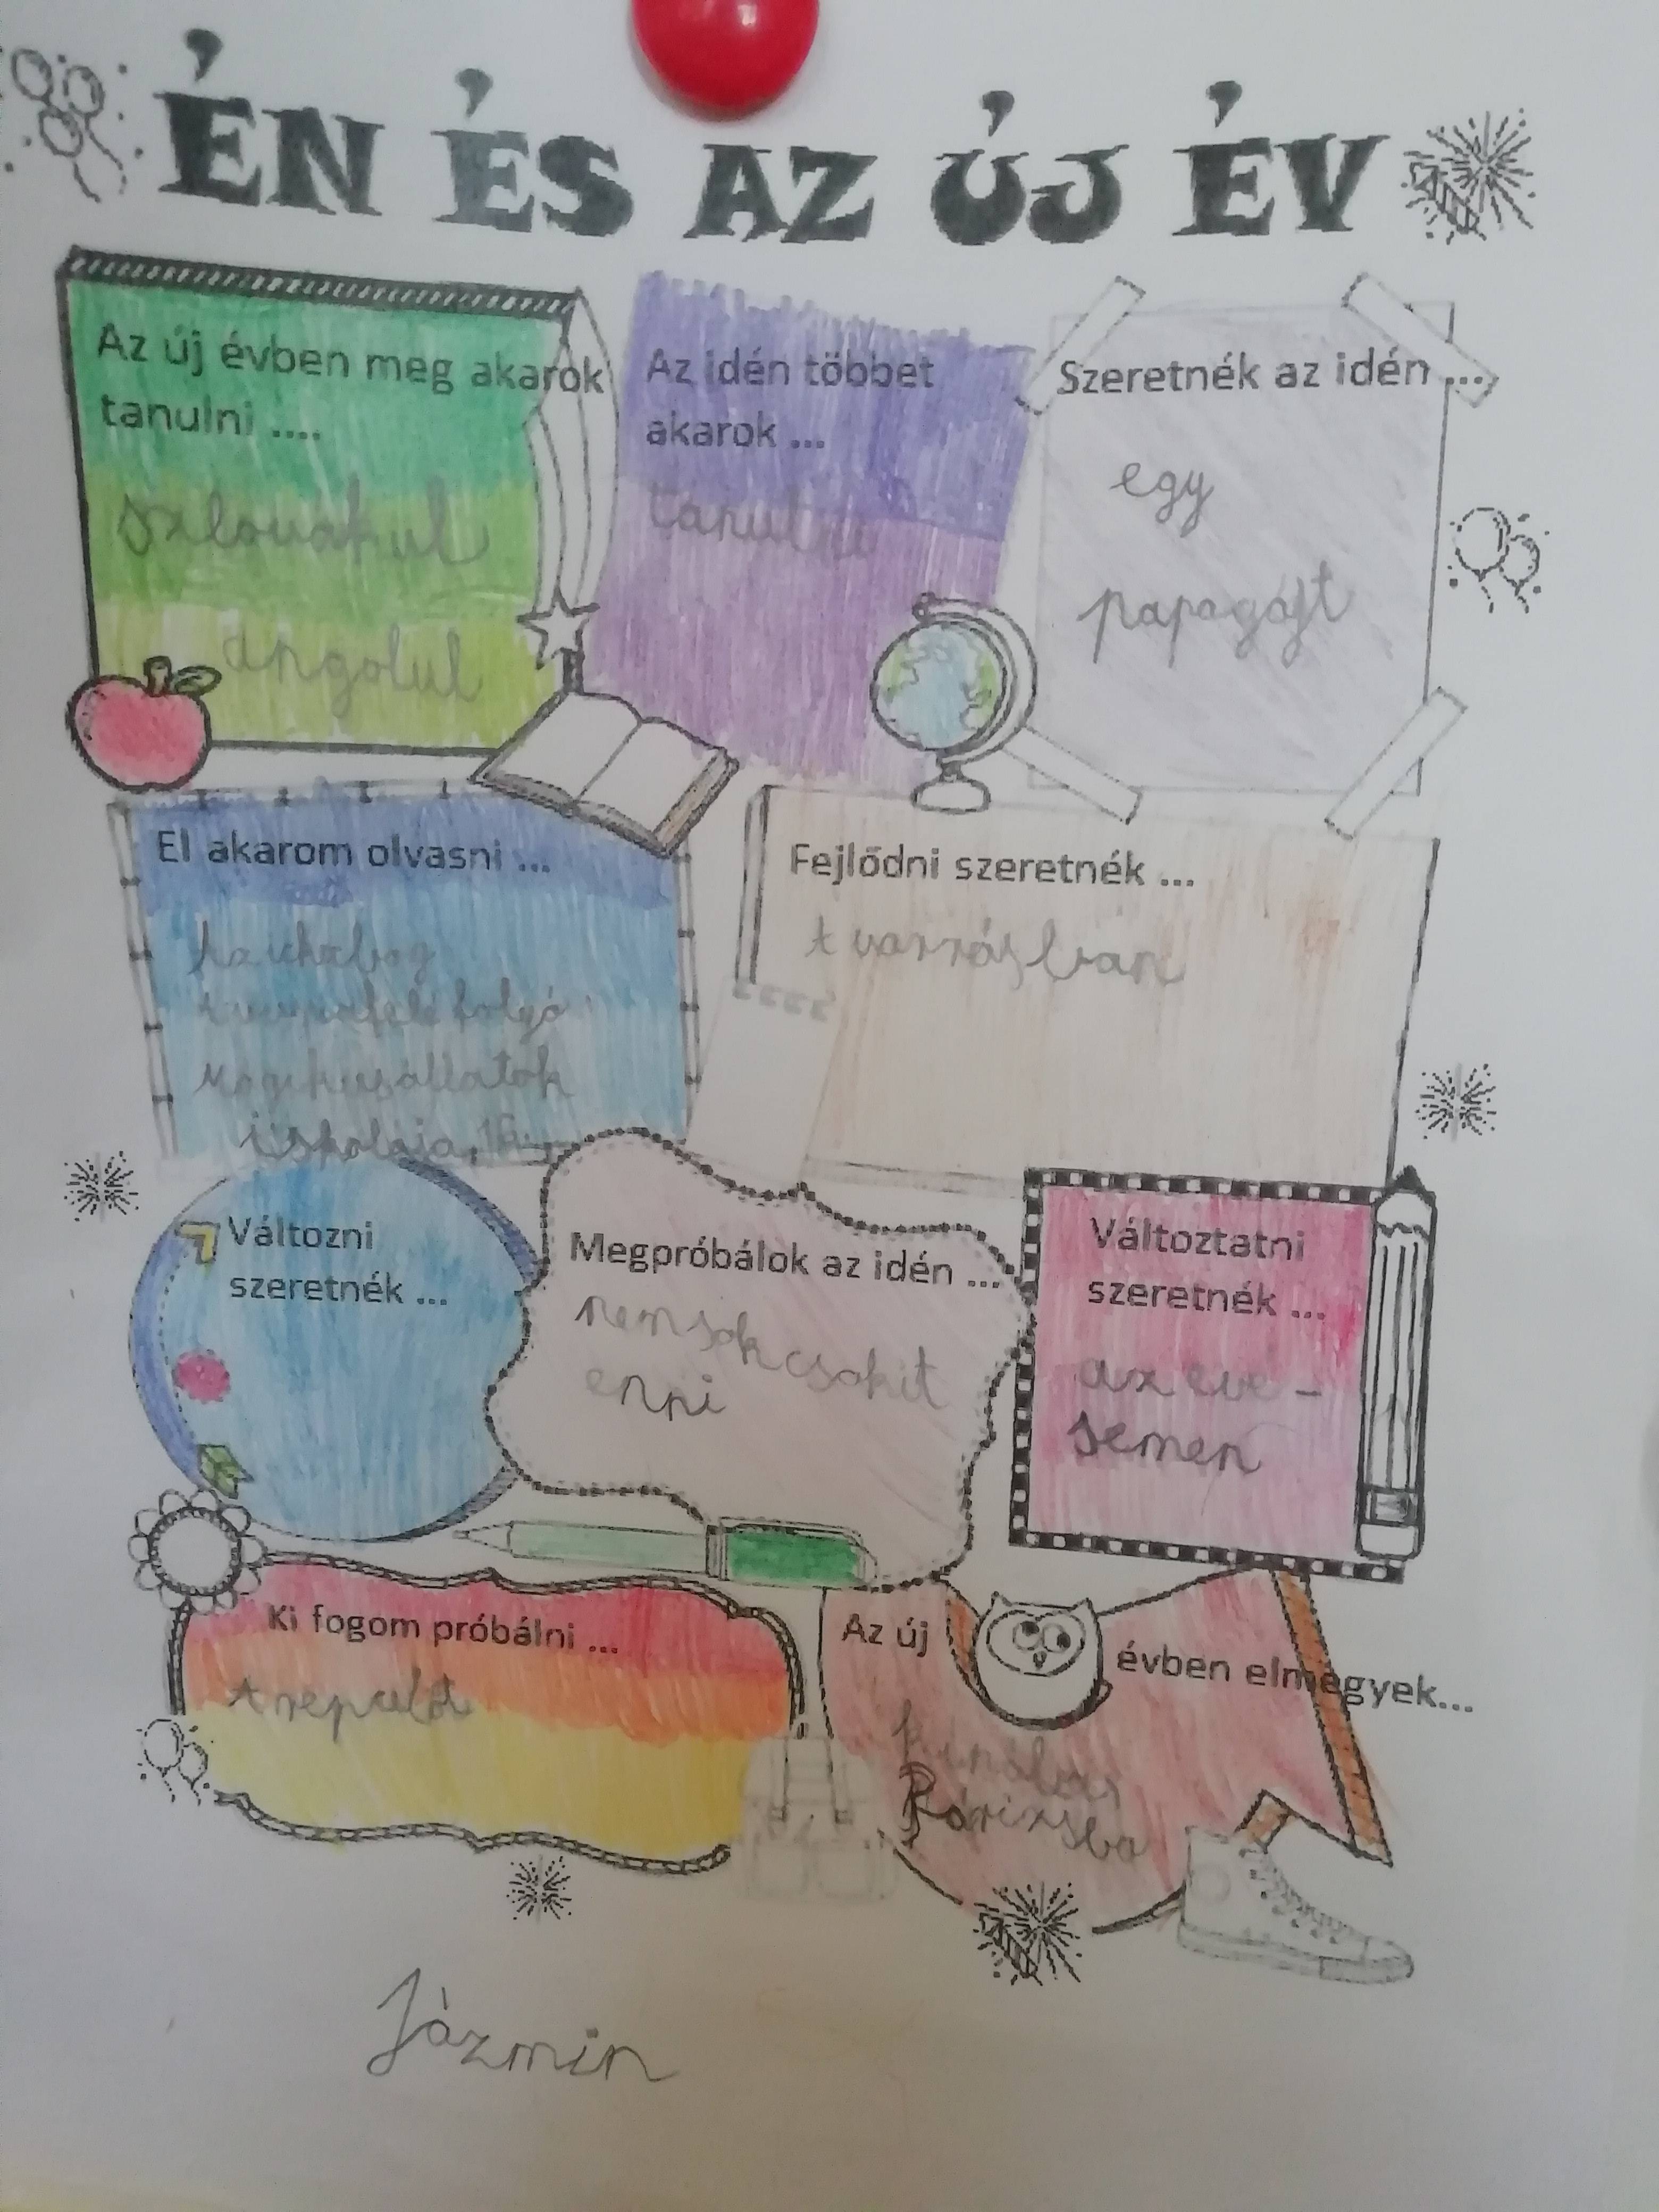 ÉN ÉS AZ ÚJ ÉV
Az új évben meg akarok
tanulni ....
szlovákul
angolul
Az idén többet
akarok ...
tanulni
Szeretnék az idén ...
egy
papagájt
El akarom olvasni ...
Fejlődni szeretnék ...
A varrásban
Mágikusállatok
iskolája,
Változni
szeretnék ...
Megpróbálok az idén ...
nem sok csokit
enni
Változtatni
szeretnék ...
az evé-
semen
Ki fogom próbálni ...
A repülőt
Az új évben elmegyek...
Párizsba
Jázmin